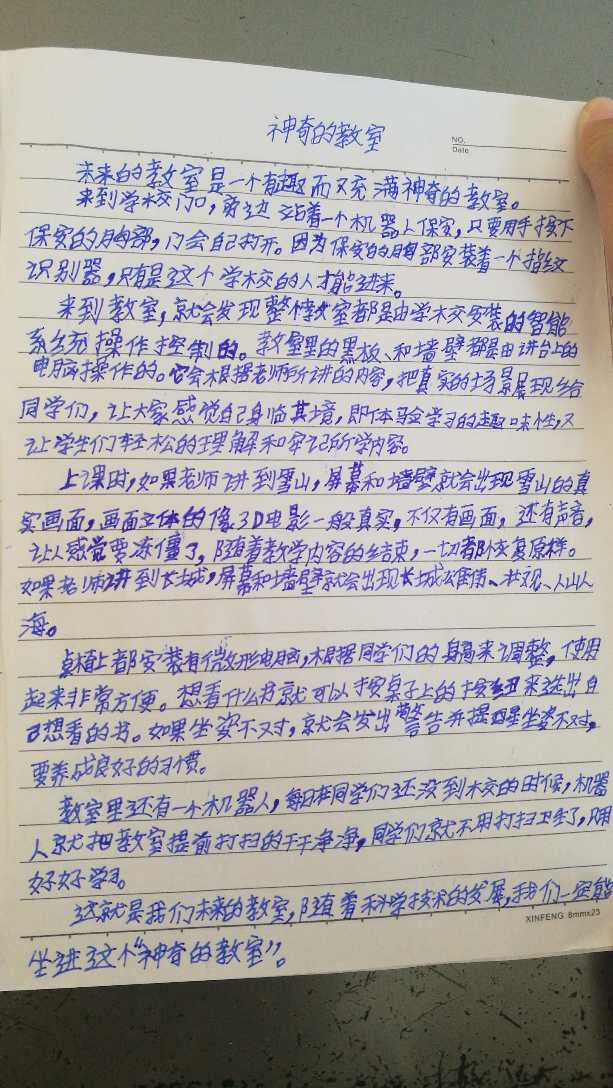 神奇的教室
NO.
Date
未来的教室是一个有趣而又充满神奇的教室。
来到学校门口,旁边站着一个机器人保安,只要用手按下
保安的胸部,门会自己打开。因为保安的胸部安装着一个指纹
识别器,只有是这个学校的人才能进来。
来到教室,就会发现整个教室都是由学校安装的智能
系统操作控制的。教室里的黑板、和墙壁都是由讲台上的
电脑操作的。它会根据老师所讲的内容,把真实的场景展现给
同学们,让大家感觉自己身临其境,即体验学习的趣味性,又
让学生们轻松的理解和牢记所学内容。
上课时,如果老师讲到雪山,屏幕和墙壁就会出现雪山的真
实画面,画面立体的像3D电影一般真实,不仅有画面,还有声音,
让人感觉要冻僵了,随着教学内容的结束,一切都恢复原样。
如果老师讲到长城,屏幕和墙壁就会出现长城雄伟、壮观、人山人
海。
桌椅上都安装有微形电脑,根据同学们的身高来调整,使用
起来非常方便。想看什么书就可以按桌子上的按钮来选出自
己想看的书。如果坐姿不对,就会发出警告并提醒坐姿不对,
要养成良好的习惯。
教室里还有一个机器人,每天在同学们还没到校的时候,机器
人就把教室提前打扫的干干净净,同学们就不用打扫卫生了,只用
好好学习。
这就是我们未来的教室,随着科学技术的发展,我们一定能
XINFENG 8mmx23
坐进这个“神奇的教室”。